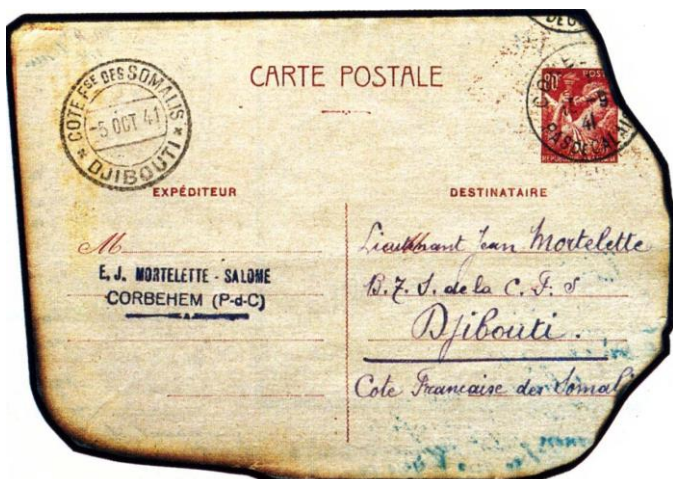 CARTE POSTALE
COTE FSE DES SOMALIS
-5 OCT 41
DJIBOUTI
80
POST
41
PAS DE CALAIS
EXPÉDITEUR
M
E. J. MORTELETTE - SALOME
CORBEHEM (P-d-C)
DESTINATAIRE
Lieutenant Jean Mortelette
B. T. S. de la C. F. S
Djibouti.
Cote Francaise des Somali